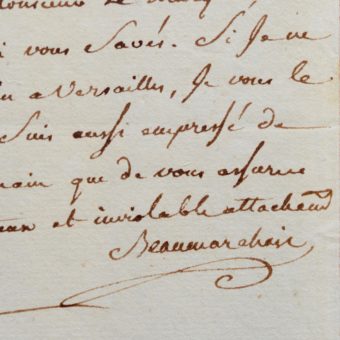 Monsieur de
vous Savés. Si Je ne
a Versailles, Je vous le
Suis aussi empressé de
main que de vous assurer
et inviolable attachemt
Beaumarchais